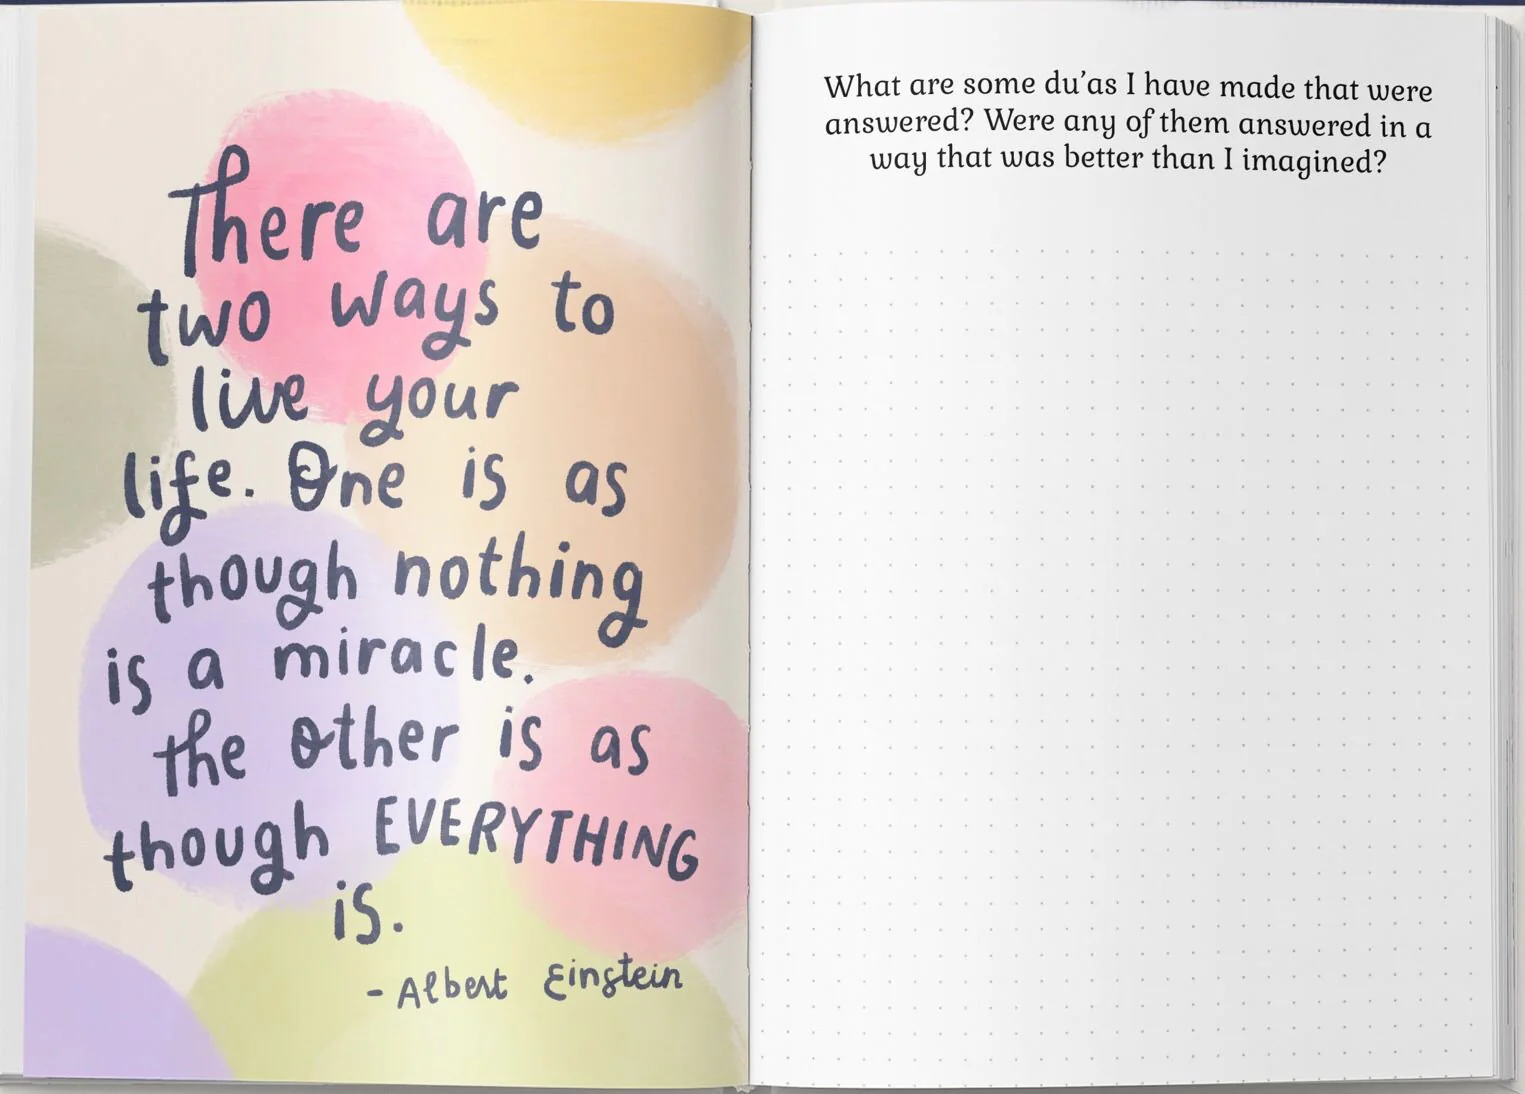 There are
two ways to
live your
life. One is as
though nothing
is a miracle.
The other is as
though EVERYTHING
is.
- Albert Einstein
What are some du’as I have made that were
answered? Were any of them answered in a
way that was better than I imagined?